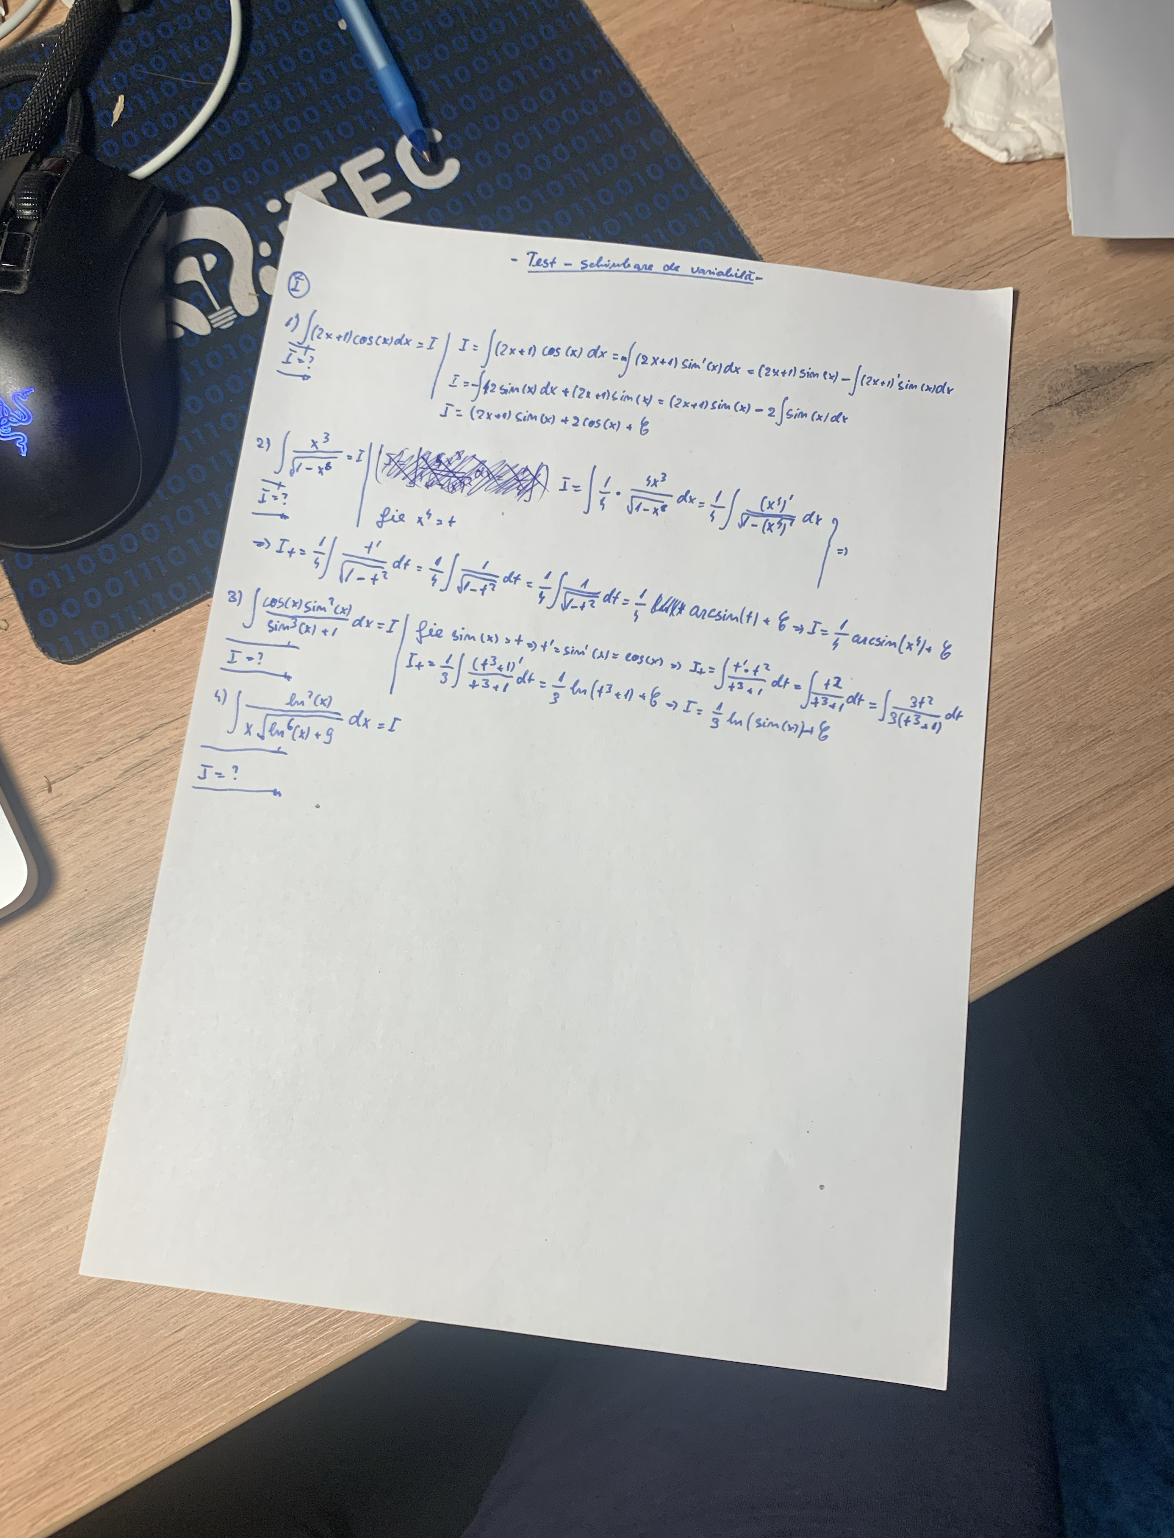 Q:iTEC
- Test - schimbare de variabilă -
I
1) ∫(2x+1)cos(x)dx = I
I = ?
I = ∫(2x+1) cos(x) dx = ∫(2x+1) sin'(x)dx = (2x+1) sin(x) - ∫(2x+1)'sin(x)dx
I = -∫2 sin(x) dx + (2x+1) sin(x) = (2x+1) sin(x) - 2∫sin(x) dx
I = (2x+1) sin(x) + 2cos(x) + C
2) ∫ x³/√(1-x⁸) = I
I = ?
I = ∫ 1/4 · 4x³/√(1-x⁸) dx = 1/4 ∫ (x⁴)'/√(1-(x⁴)²) dx
fie x⁴ = t
⇒
⇒ I_t = 1/4 ∫ t'/√(1-t²) dt = 1/4 ∫ 1/√(1-t²) dt = 1/4 ∫ 1/√(1-t²) dt = 1/4 arcsin(t) + C ⇒ I = 1/4 arcsin(x⁴) + C
3) ∫ cos(x) sin²(x)/(sin³(x)+1) dx = I
I = ?
fie sin(x) = t ⇒ t' = sin'(x) = cos(x) ⇒ I_t = ∫ t'·t²/(t³+1) dt = ∫ t²/(t³+1) dt = ∫ 3t²/(3(t³+1)) dt
I_t = 1/3 ∫ (t³+1)'/(t³+1) dt = 1/3 ln(t³+1) + C ⇒ I = 1/3 ln(sin(x)) + C
4) ∫ ln²(x)/(x√(ln⁶(x)+9)) dx = I
I = ?